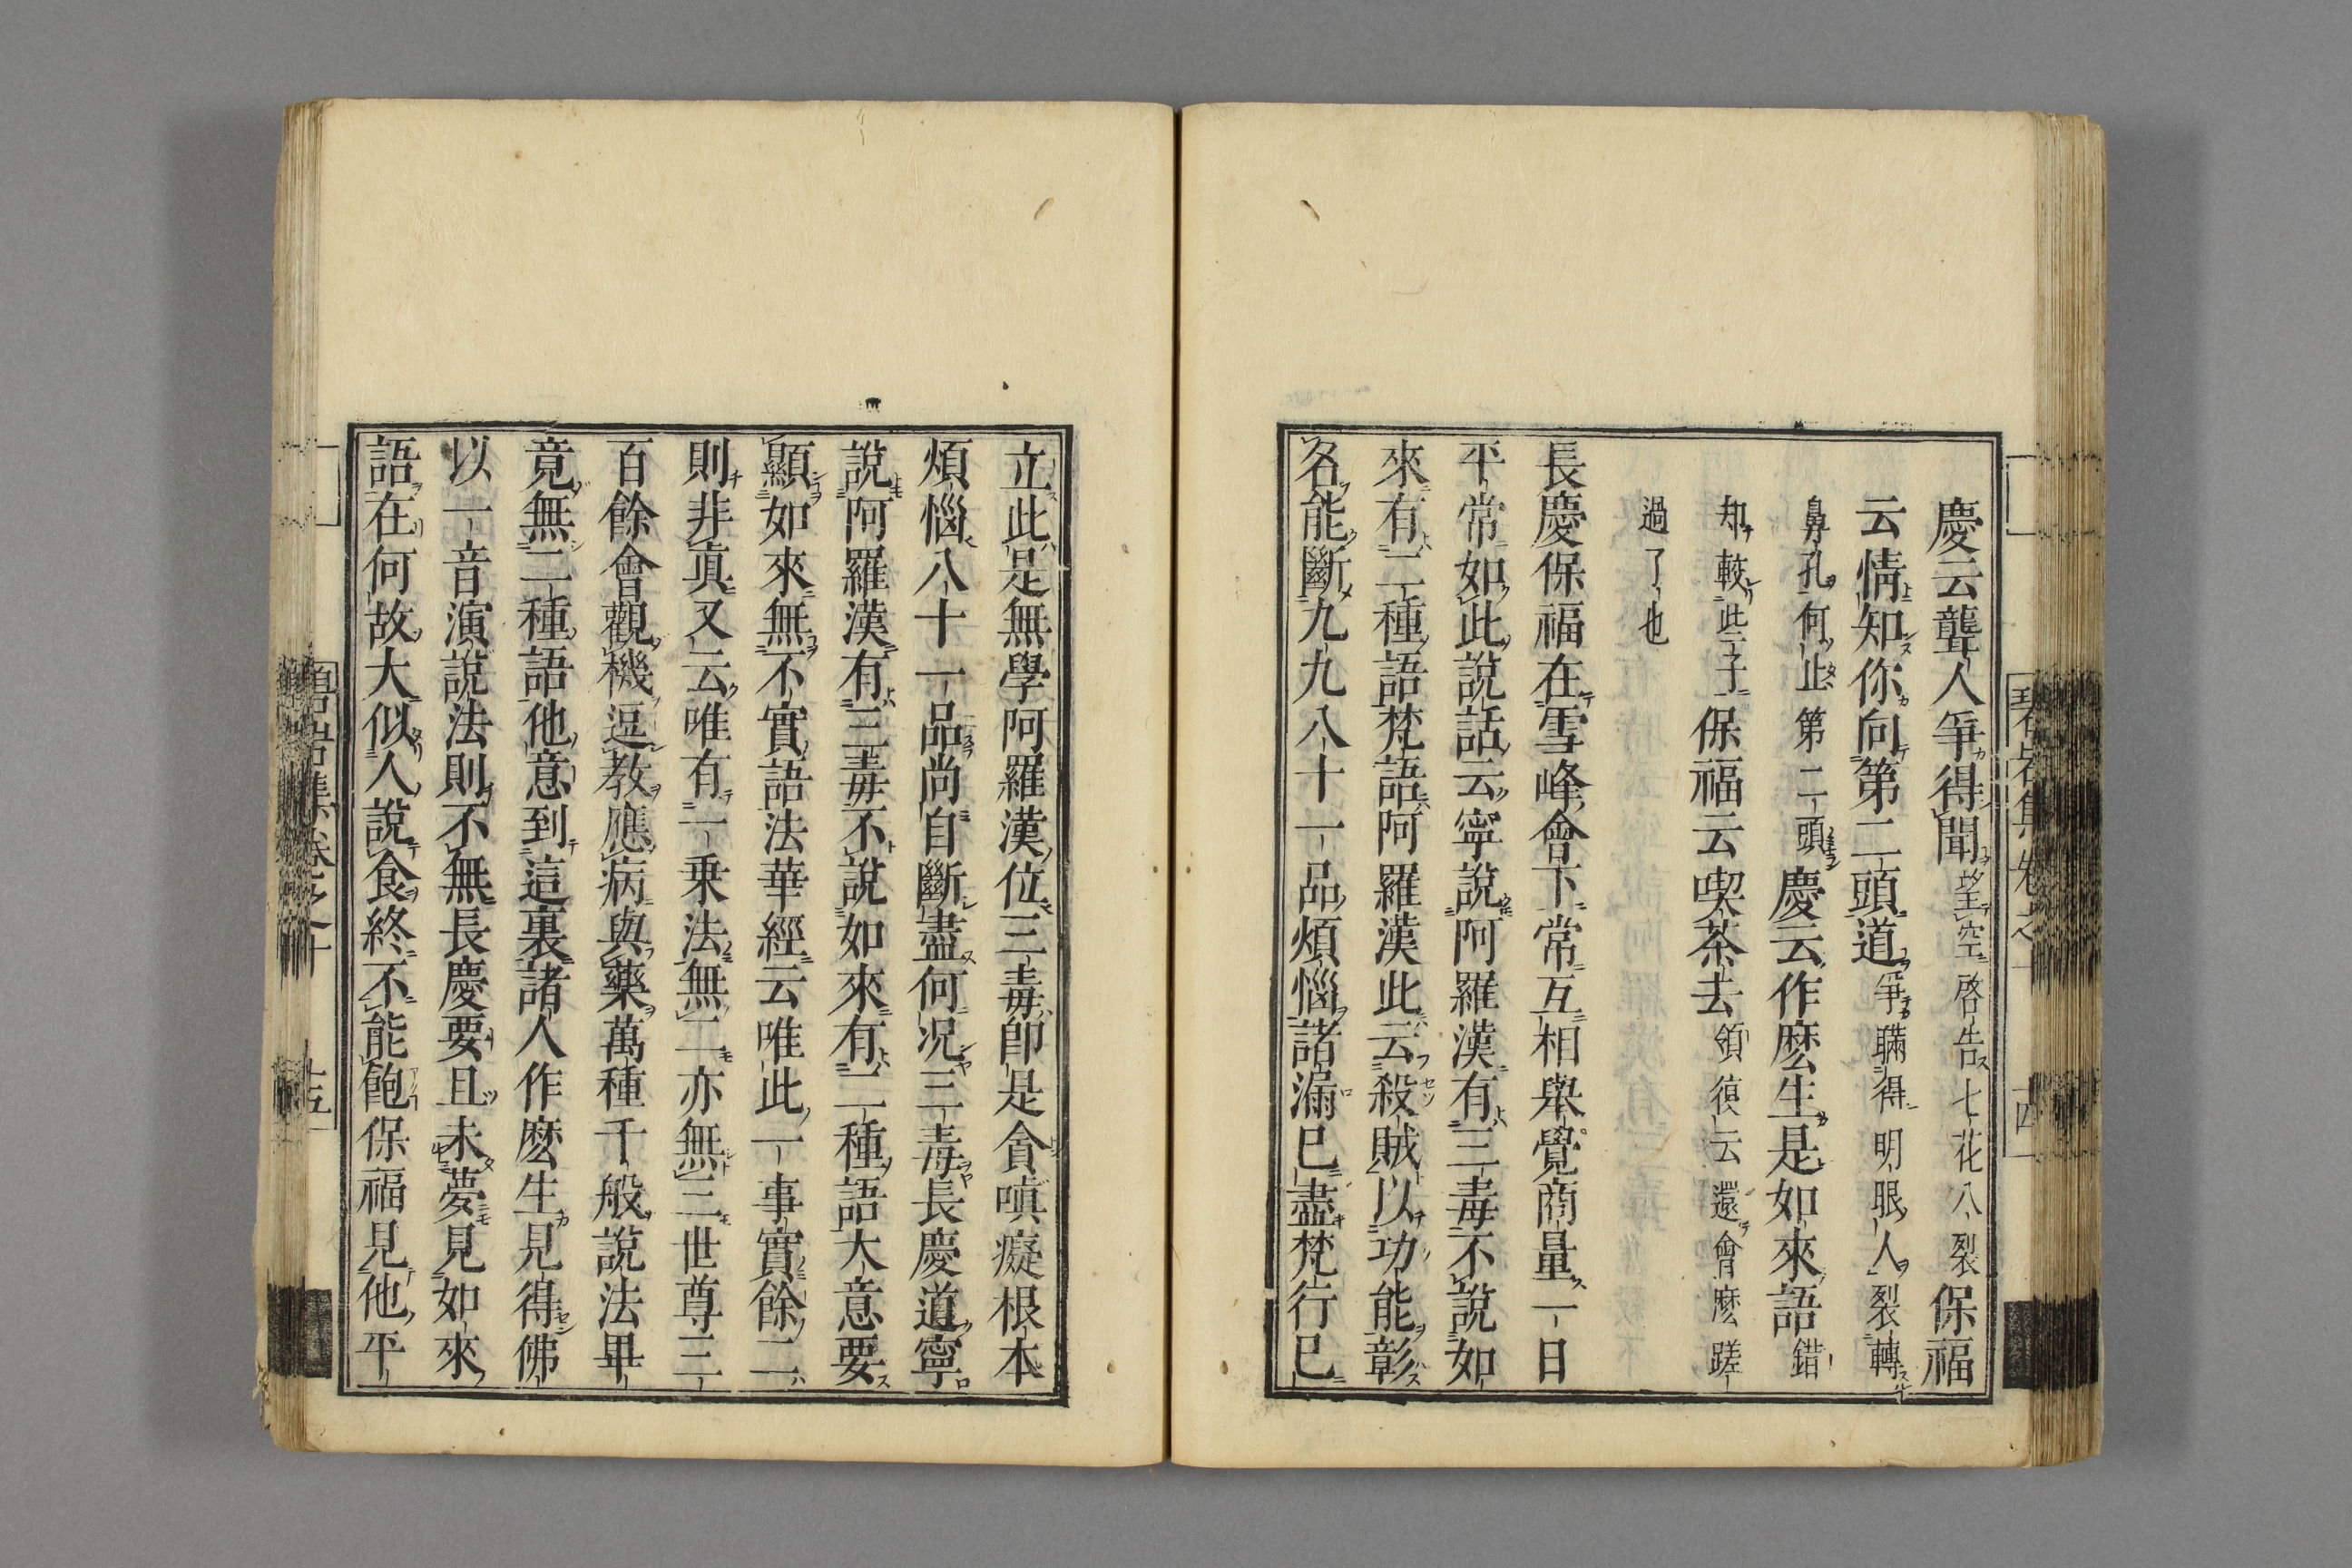 慶云聾人爭得聞望空啓告七花八裂保福
云情知你向第二頭道爭瞞得明眼人裂轉
鼻孔何止第二頭慶云作麽生是如來語錯
却較些子保福云喫茶去領復云還會麽蹉
過了也
長慶保福在雪峰會下常互相舉覺商量一日
平常如此說話云寧說阿羅漢有三毒不說如
來有二種語梵語阿羅漢此云殺賊以功能彰
名能斷九九八十一品煩惱諸漏已盡梵行已
立此是無學阿羅漢位三毒卽是貪嗔癡根本
煩惱八十一品尚自斷盡何况三毒長慶道寧
說阿羅漢有三毒不說如來有二種語大意要
顯如來無不實語法華經云唯此一事實餘二
則非眞又云唯有一乗法無二亦無三世尊三
百餘會觀機逗教應病與藥萬種千般說法畢
竟無二種語他意到這裏諸人作麽生見得佛
以一音演說法則不無長慶要且未夢見如來
語在何故大似人說食終不能飽保福見他平